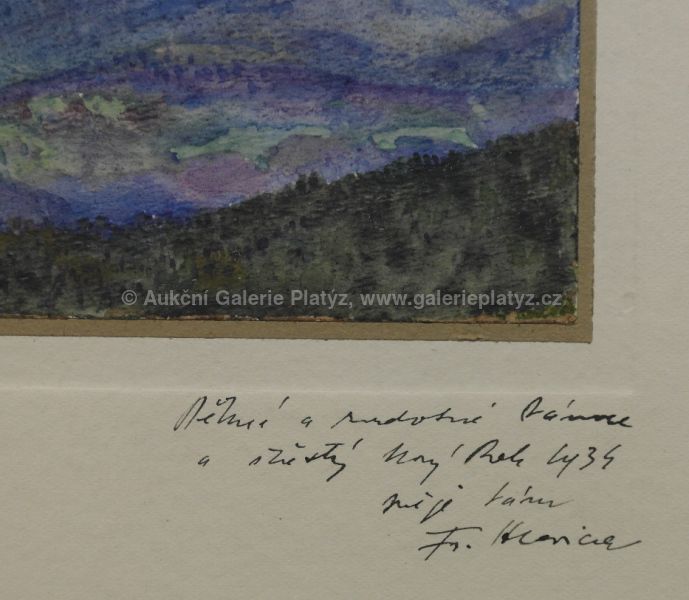 © Aukční Galerie Platýz, www.galerieplatyz.cz
a radostné Vánoce
a šťastný Nový Rok 1934
přeje Vám
Fr. Hlavica